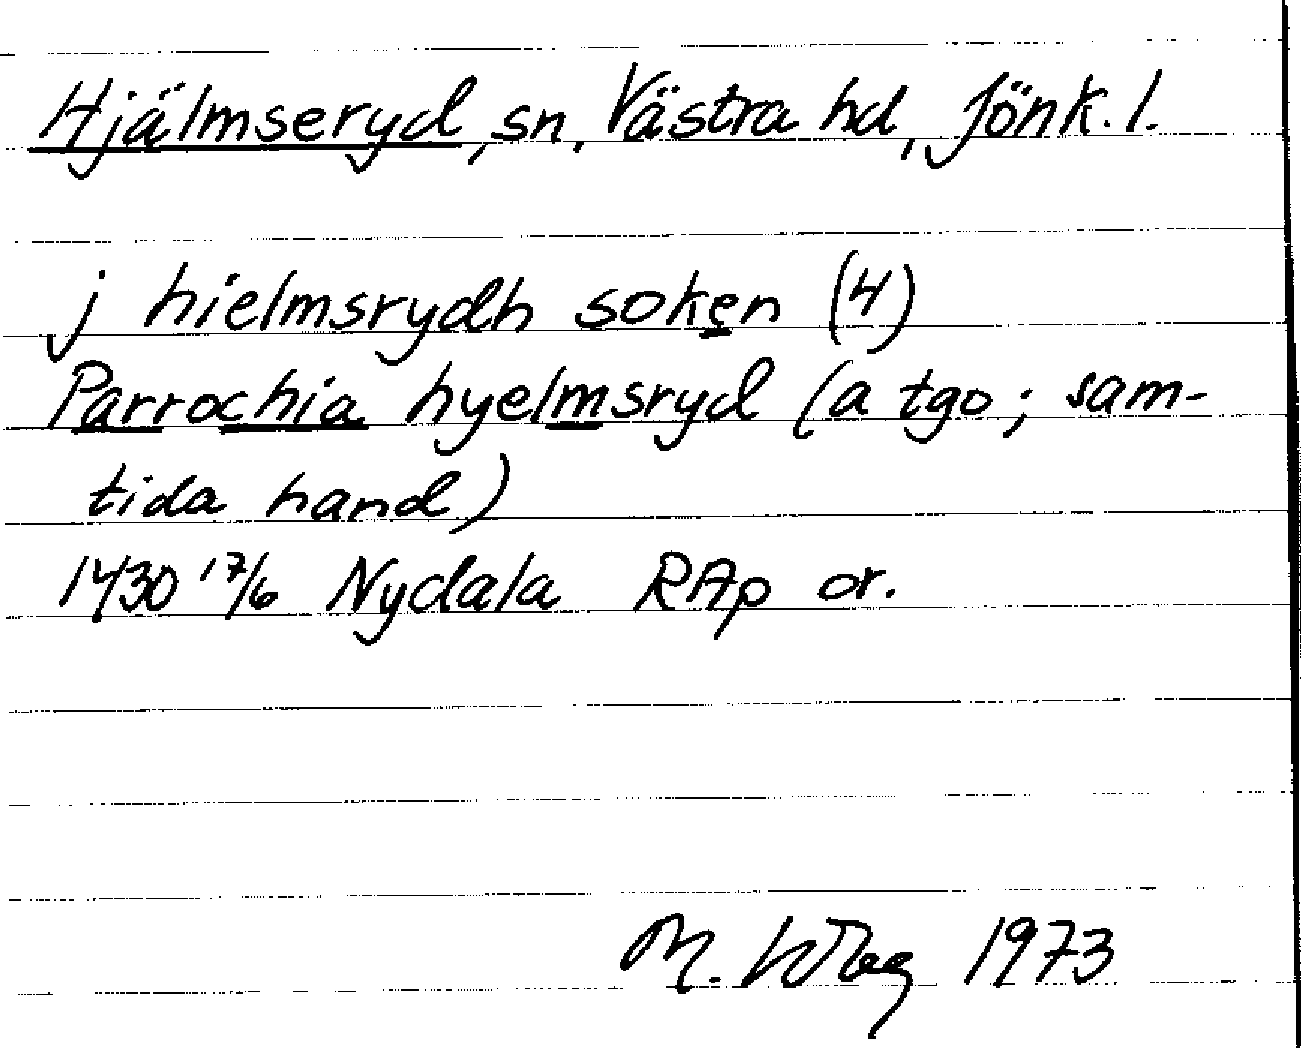 Hjälmseryd, sn, Västra hd, Jönk. l.
j hielmsrydh soken (4)
Parrochia hyelmsryd (a tgo; sam-
tida hand)
1430 17/6 Nydala RAp or.
M. 1973